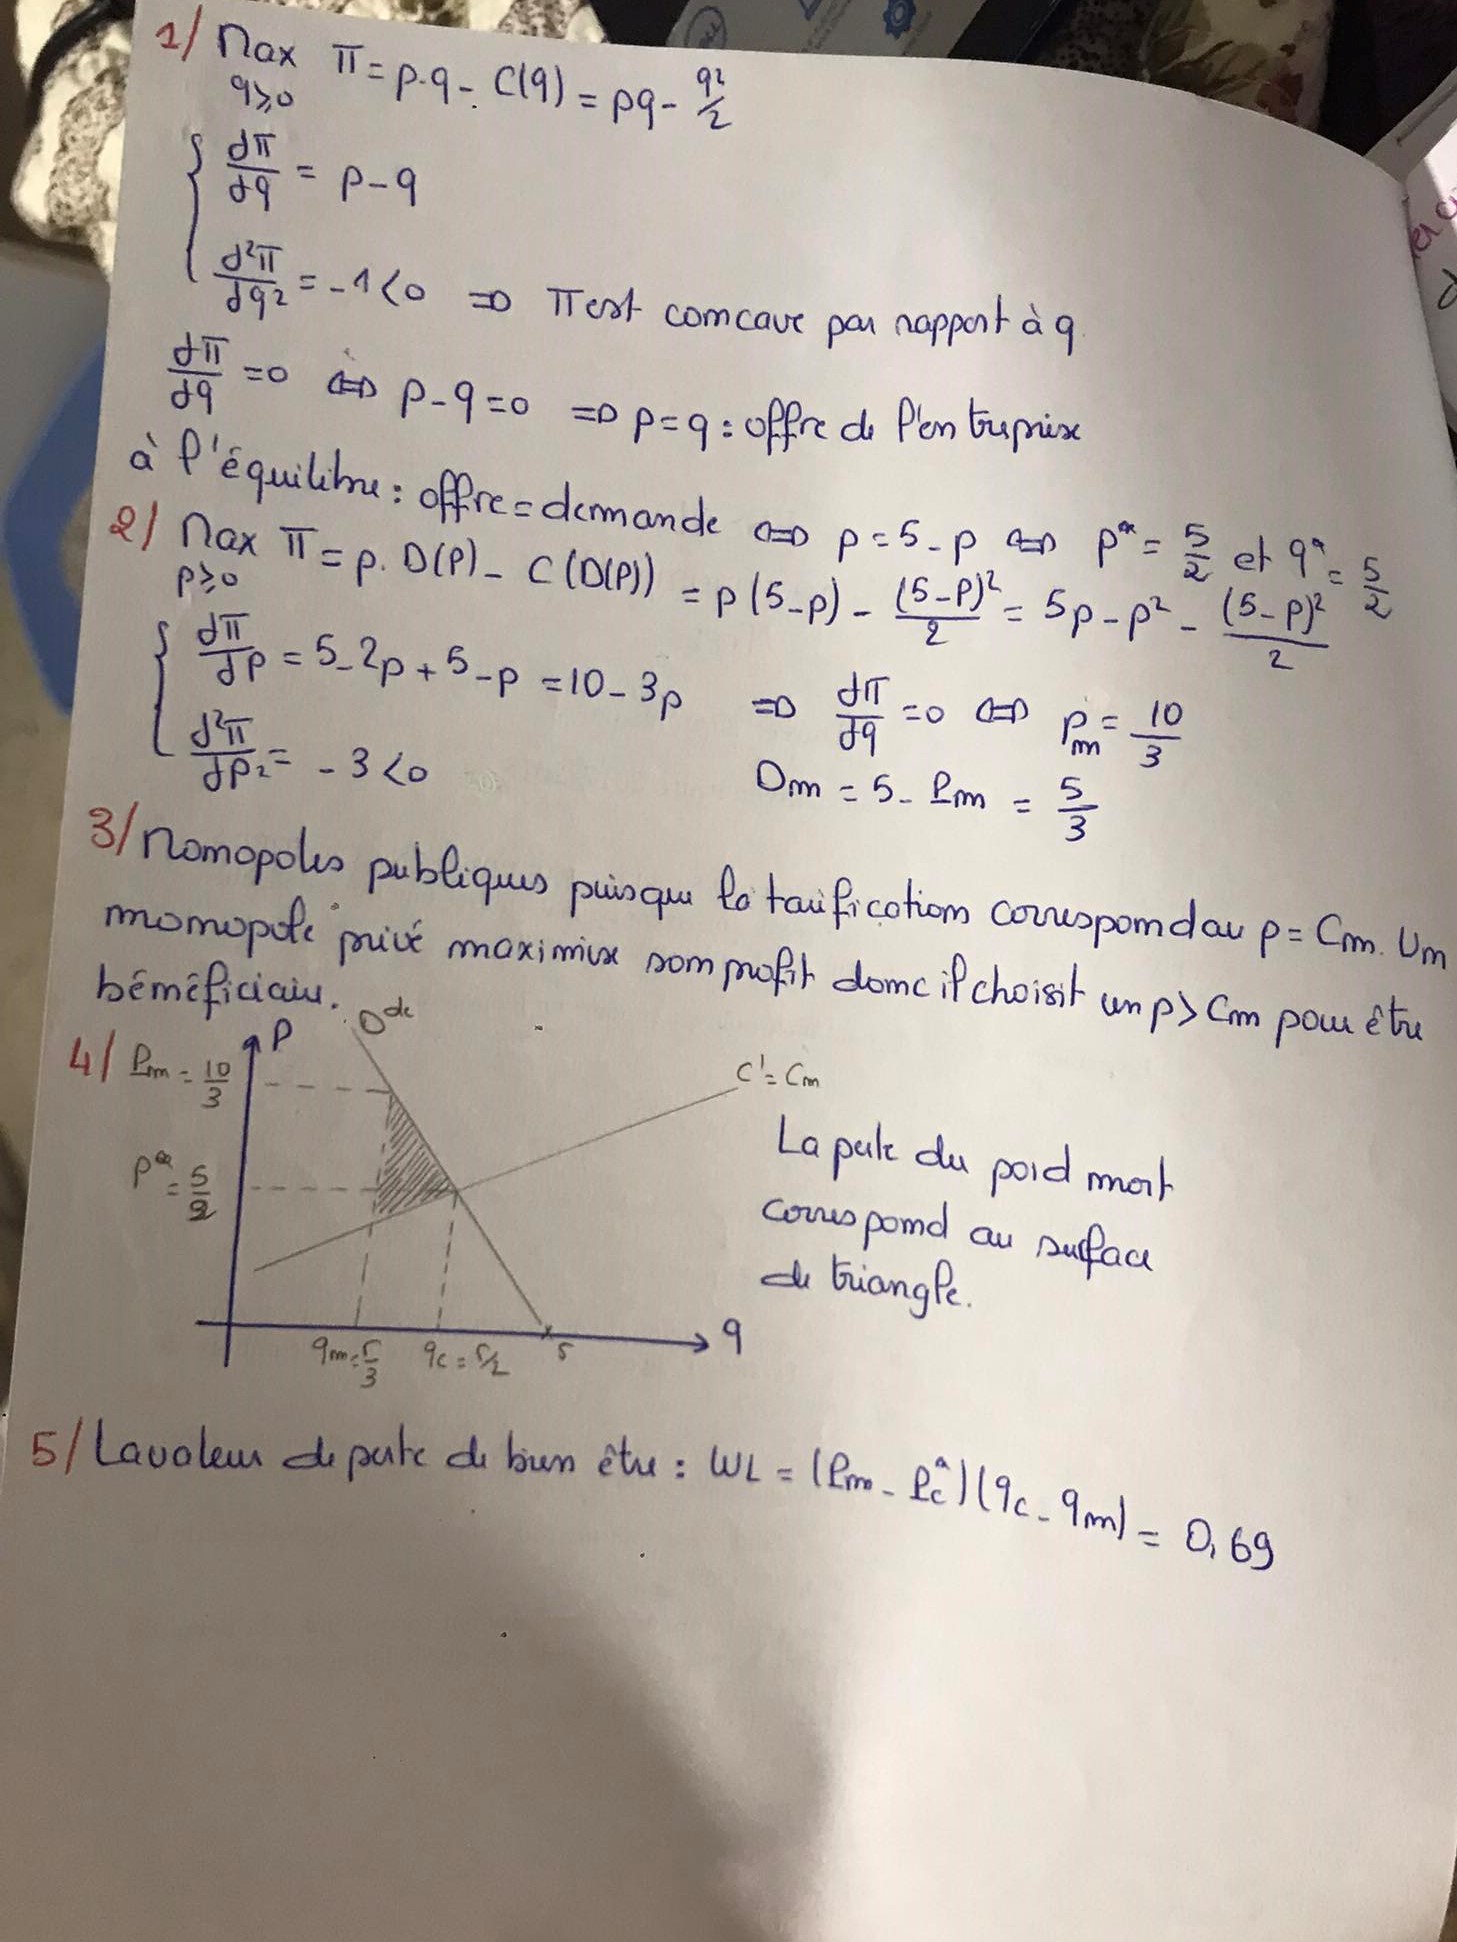 1/ Max π = p.q - C(q) = pq - q²/2
q≥0
dπ/dq = p - q
d²π/dq² = -1 < 0 ⇒ π est concave par rapport à q
dπ/dq = 0 ⇔ p - q = 0 ⇒ p = q : offre de l'entreprise
à l'équilibre : offre = demande ⇔ p = 5 - p ⇔ p* = 5/2 et q* = 5/2
2/ Max π = p. D(p) - C(D(p)) = p(5-p) - (5-p)²/2 = 5p - p² - (5-p)²/2
p≥0
dπ/dp = 5 - 2p + 5 - p = 10 - 3p ⇒ dπ/dq = 0 ⇔ pm = 10/3
d²π/dp² = -3 < 0 Dm = 5 - Pm = 5/3
3/ Monopoles publiques puisque la tarification correspond au p = Cm. Um
monopole privé maximise som profit donc il choisit un p > Cm pour être
bénéficiaire.
4/ Pm = 10/3 P Dde C' = Cm
p* = 5/2
La perte du poid mort
correspond au surface
de triangle.
qm = 5/3 qc = 5/2 5 q
5/ La valeur de perte de bien être : WL = (Pm - Pc*)(qc - qm) = 0,69